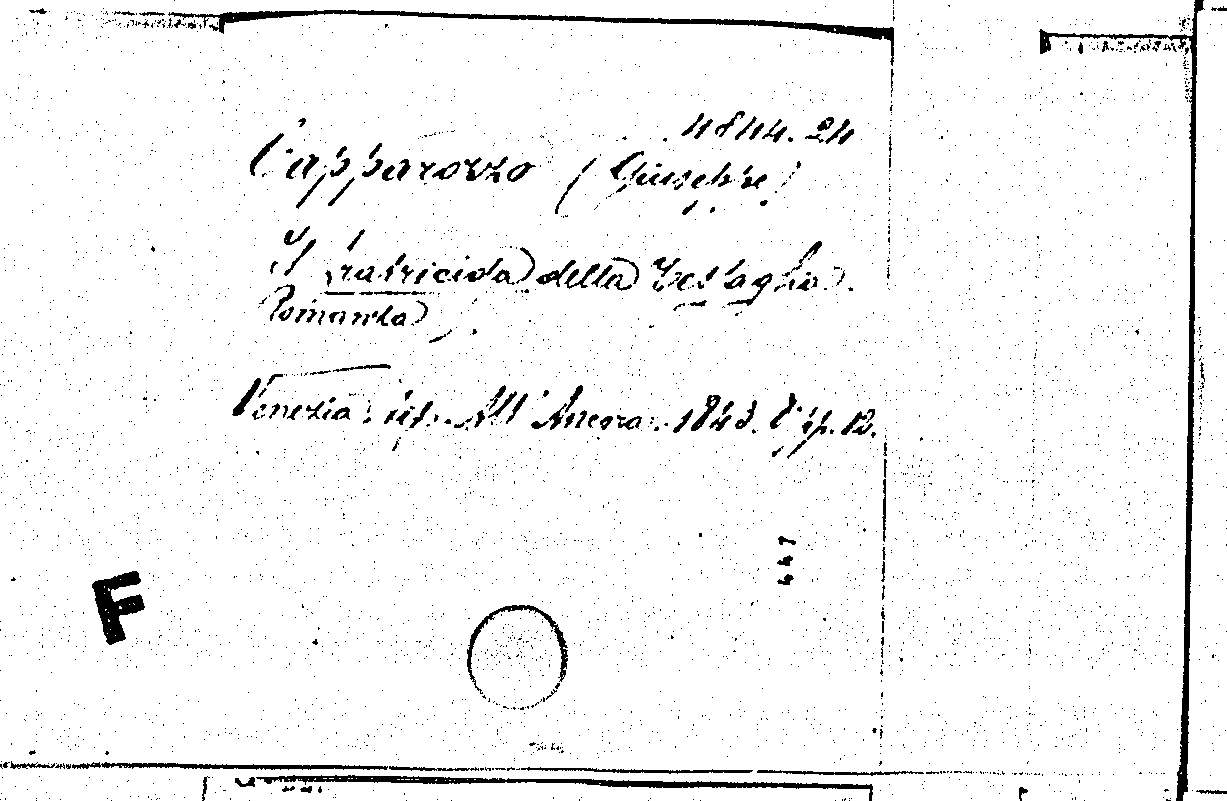 4844.24
Capparozzo (Giuseppe)
Il fratricida della
Romanza
Venezia. tip. All'Ancora. 1843. 8° p. 12.
447
F